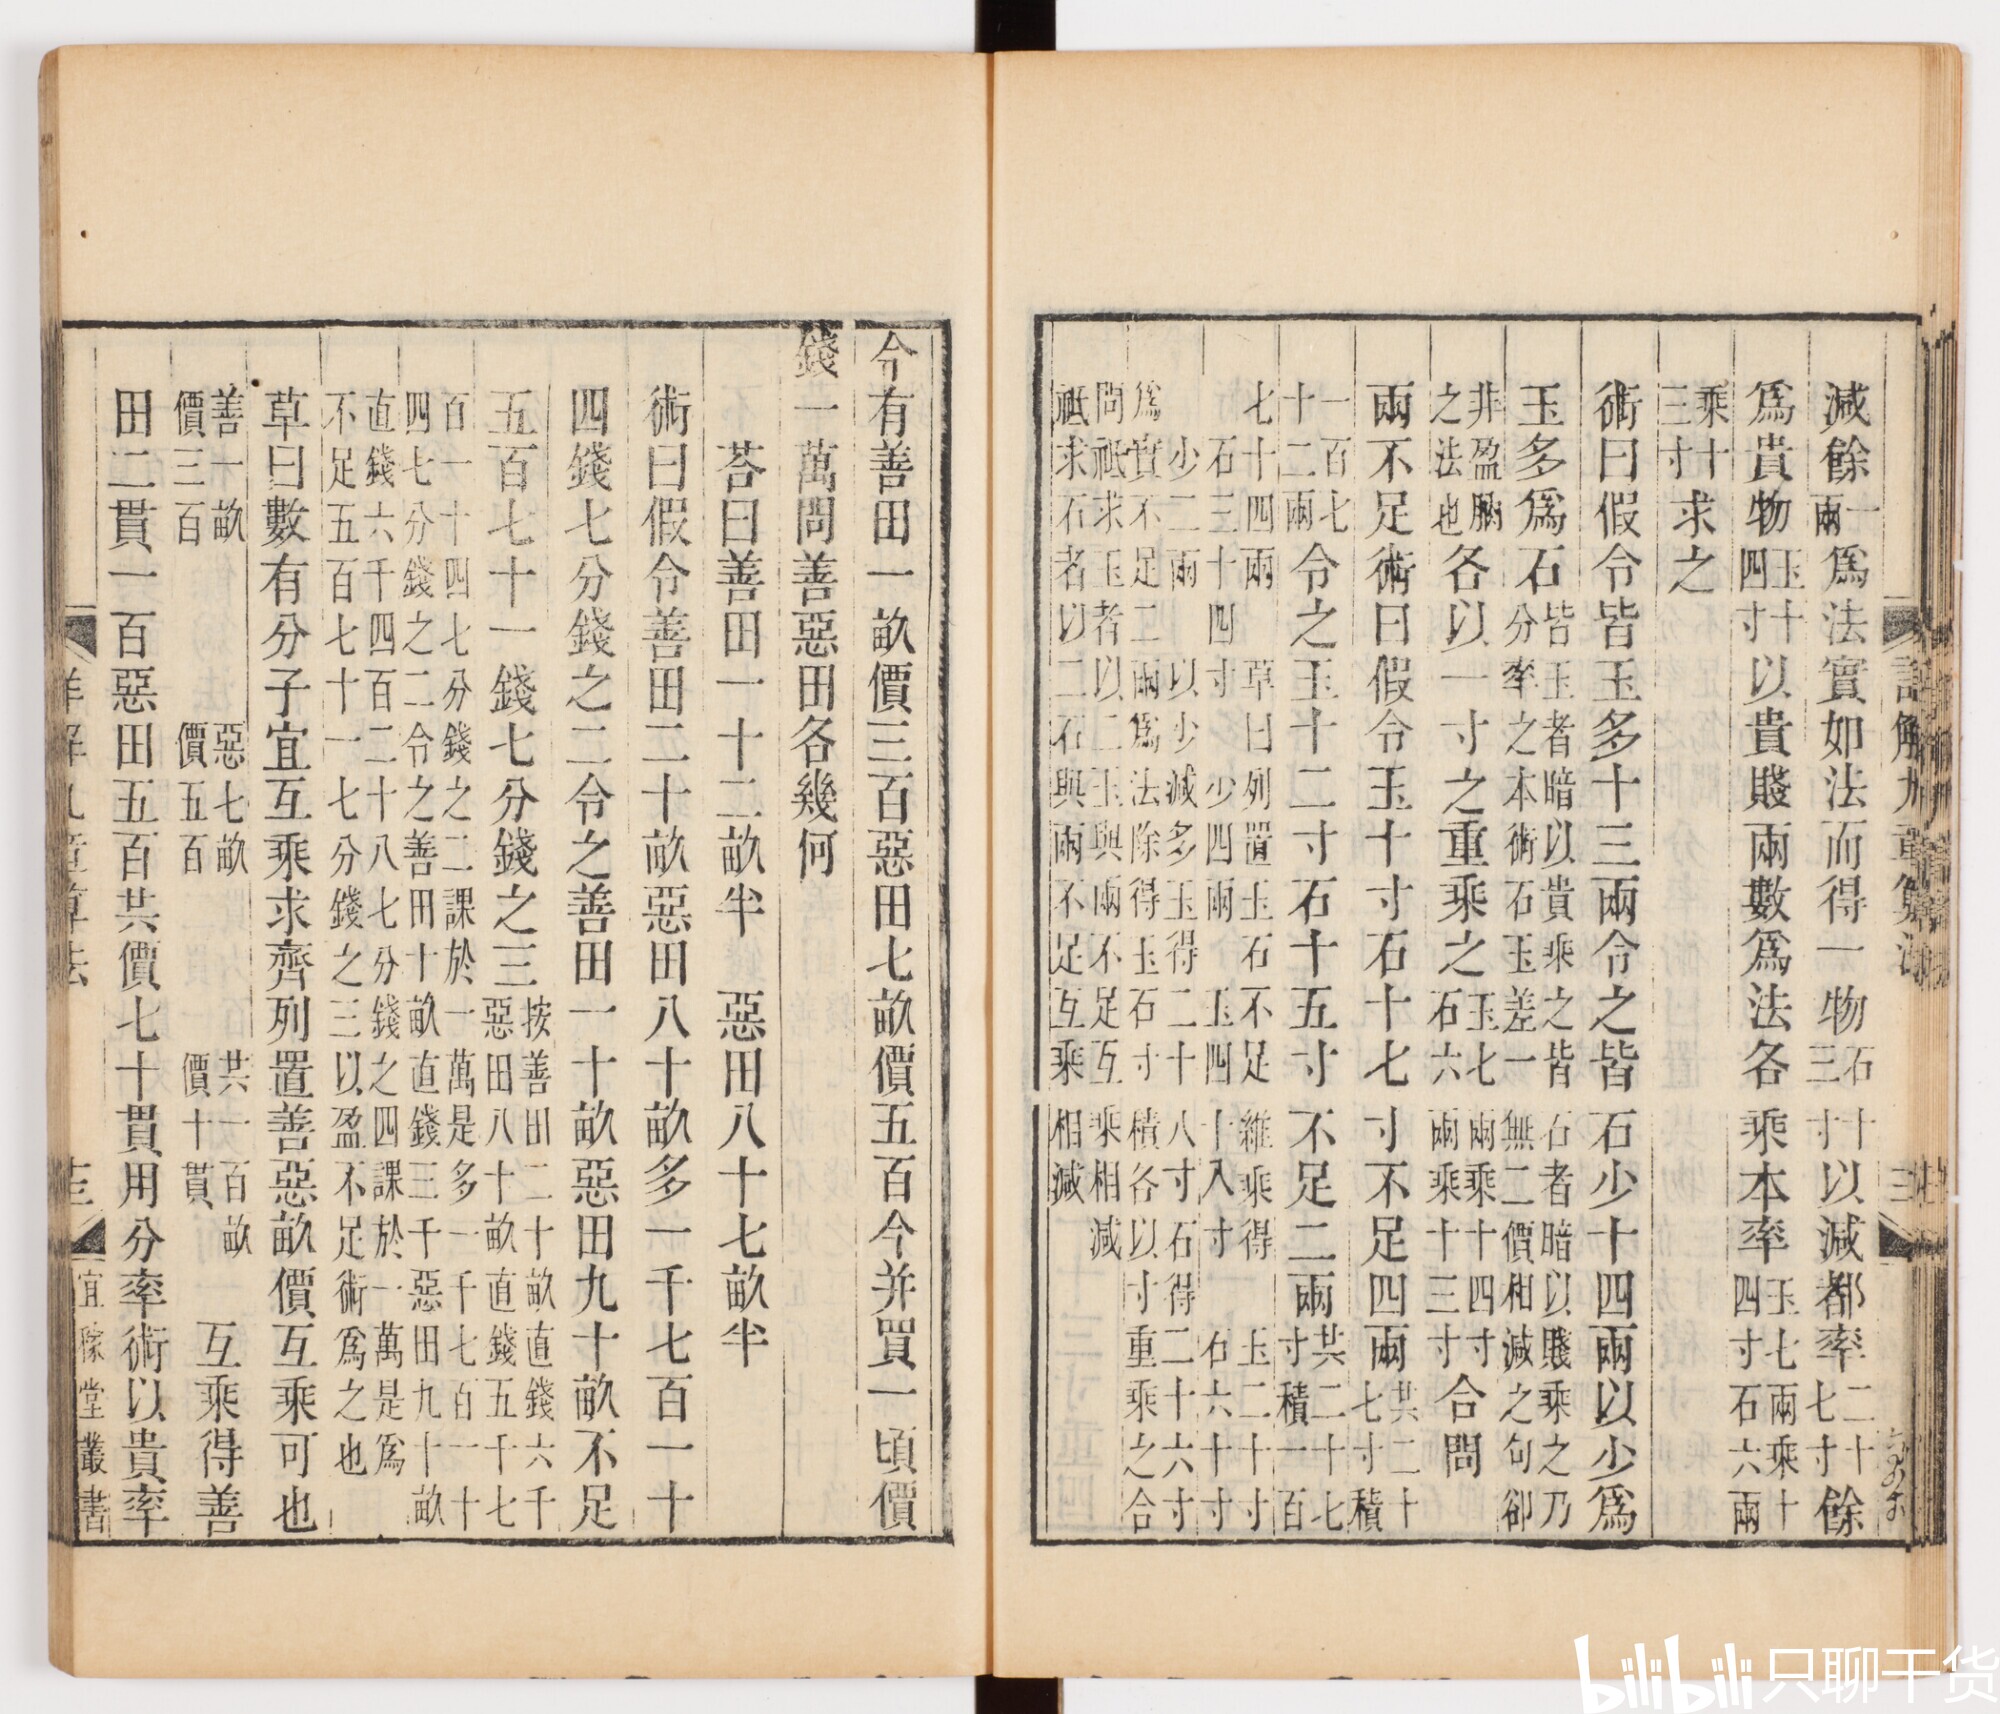 減餘一兩爲法實如法而得一物石十三寸以減都率二十七寸餘
爲貴物玉十四寸以貴賤兩數爲法各乘本率玉七兩乘十四寸石六兩
乘十三寸求之
術曰假令皆玉多十三兩令之皆石少十四兩以少爲
玉多爲石皆玉者暗以貴乘之皆石者暗以賤乘之乃分率之本術石玉差一無二價相減之句卻
非盈朒之法也各以一寸之重乘之玉七兩乘十四寸石六兩乘十三寸合問
兩不足術曰假令玉十寸石十七寸不足四兩共二十七寸積
一百七十二兩令之玉十二寸石十五寸不足二兩共二十七寸積一百
七十四兩 草曰列置玉石不足維乘得 玉二十寸
石三十四寸 少四兩 玉四十八寸 石六十寸
少二兩 以少減多玉得二十八寸石得二十六寸
爲實不足二兩爲法除得玉石寸積各以寸重乘之合
問祗求玉者以二玉與兩不足互乘相減
祗求石者以二石與兩不足互乘相減
今有善田一畝價三百惡田七畝價五百今并買一頃價
錢一萬問善惡田各幾何
荅曰善田一十二畝半 惡田八十七畝半
術曰假令善田二十畝惡田八十畝多一千七百一十
四錢七分錢之二令之善田一十畝惡田九十畝不足
五百七十一錢七分錢之三按善田二十畝直錢六千惡田八十畝直錢五千七
百一十四七分錢之二課於一萬是多一千七百一十
四七分錢之二令之善田十畝直錢三千惡田九十畝
直錢六千四百二十八七分錢之四課於一萬是爲
不足五百七十一七分錢之三以盈不足術爲之也
草曰數有分子宜互乘求齊列置善惡畝價互乘可也
善一畝價三百 惡七畝價五百 共一百畝價十貫 互乘得善
田二貫一百惡田五百共價七十貫用分率術以貴率
詳解九章算法
宜稼堂叢書
bilibili 只聊干货